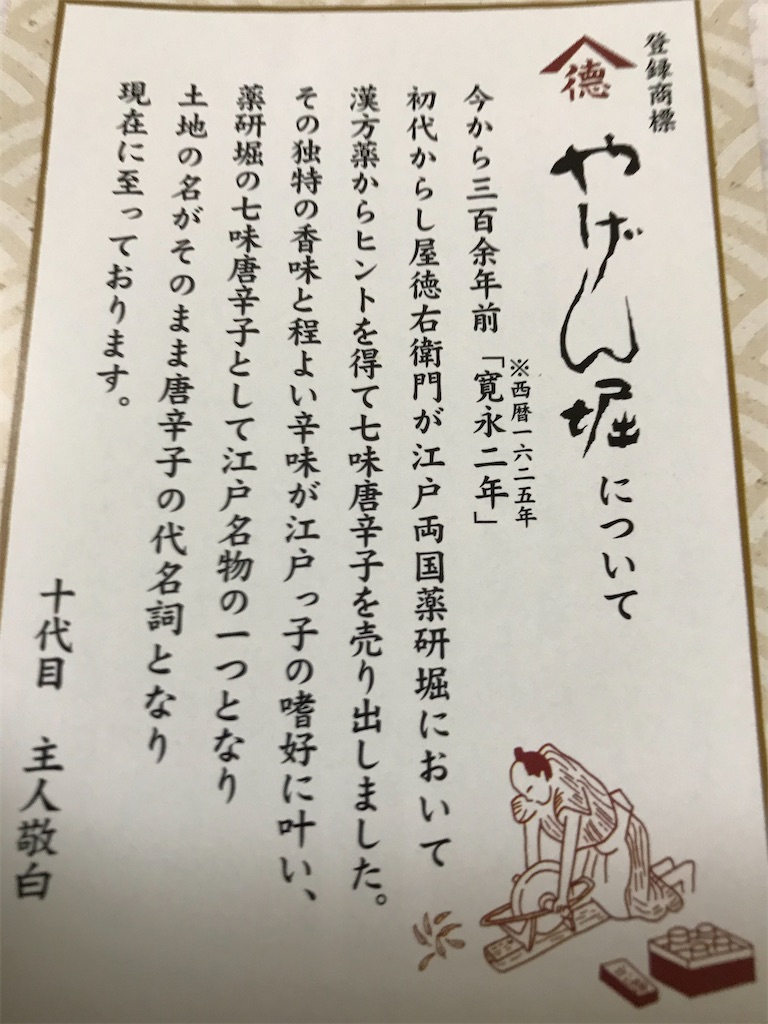 登録商標
徳
やげん堀について
今から三百余年前「寛永二年」
※西暦一六二五年
初代からし屋徳右衛門が江戸両国薬研堀において
漢方薬からヒントを得て七味唐辛子を売り出しました。
その独特の香味と程よい辛味が江戸っ子の嗜好に叶い、
薬研堀の七味唐辛子として江戸名物の一つとなり
土地の名がそのまま唐辛子の代名詞となり
現在に至っております。
十代目 主人敬白